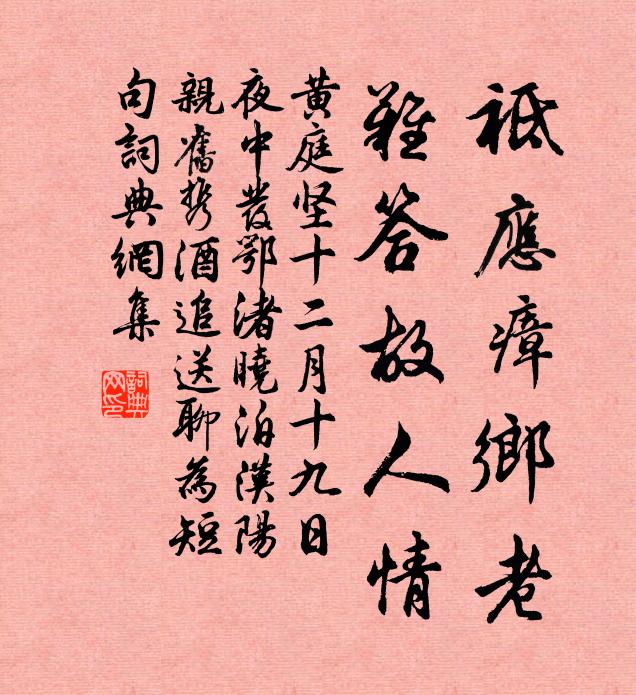 祗應瘴鄉老
難答故人情
黃庭坚十二月十九日
夜中發鄂渚曉泊漢陽
親舊携酒追送聊為短
句詞典網集
詞典
网印